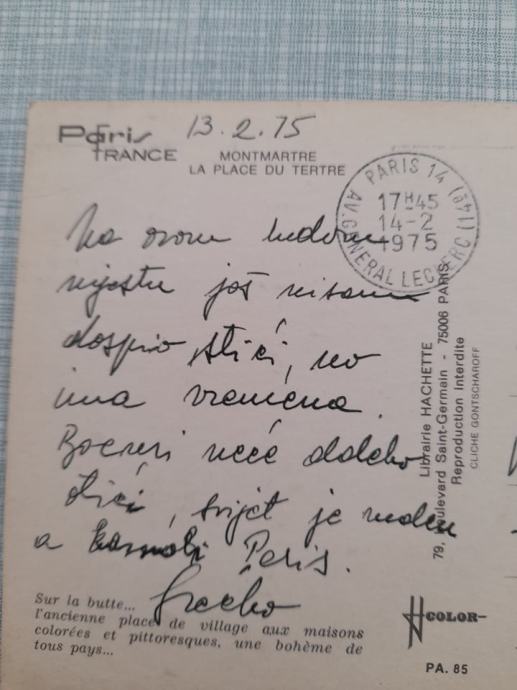 Paris
FRANCE
13.2.75
MONTMARTRE
LA PLACE DU TERTRE
PARIS 14 (14e)
17H45
14-2
1975
AV. GENERAL LECLERC
Na ovom ludom
mjestu još nisam
dospio stići, no
ima vremena.
neće daleko
stići, svijet je malen
a Paris.
Librairie HACHETTE
79, Boulevard Saint-Germain - 75006 PARIS
Reproduction Interdite
CLICHE GONTSCHAROFF
Sur la butte...
l'ancienne place de village aux maisons
colorées et pittoresques, une bohème de
tous pays...
COLOR
PA. 85